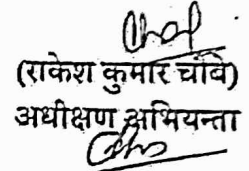 (राकेश कुमार चौबे)
अधीक्षण अभियन्ता